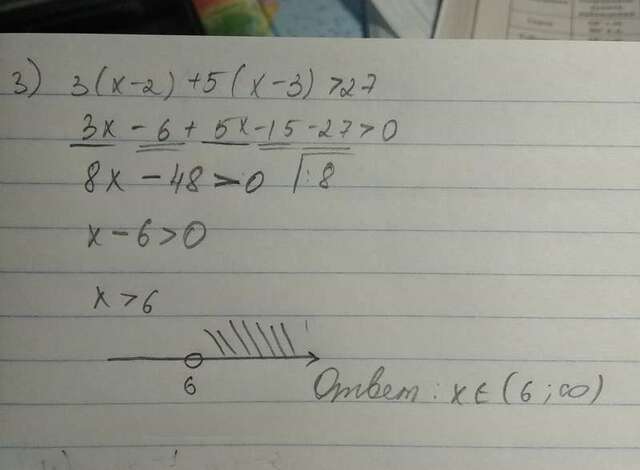 3) 3(x-2)+5(x-3)>27
3x-6+5x-15-27>0
8x-48>0 |:8
x-6>0
x>6
6
Ответ: x∈(6;∞)